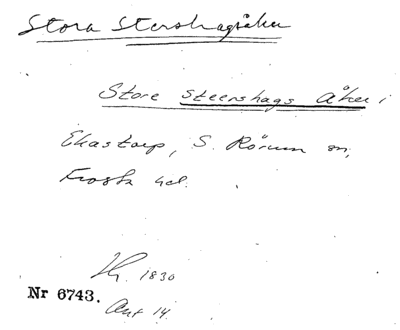 Stora Stershagsåker
Store Steershags Åker i
Ekastorp, S. Rörum sn,
Frosta hd.
1830
Nr 6743.
Akt 14